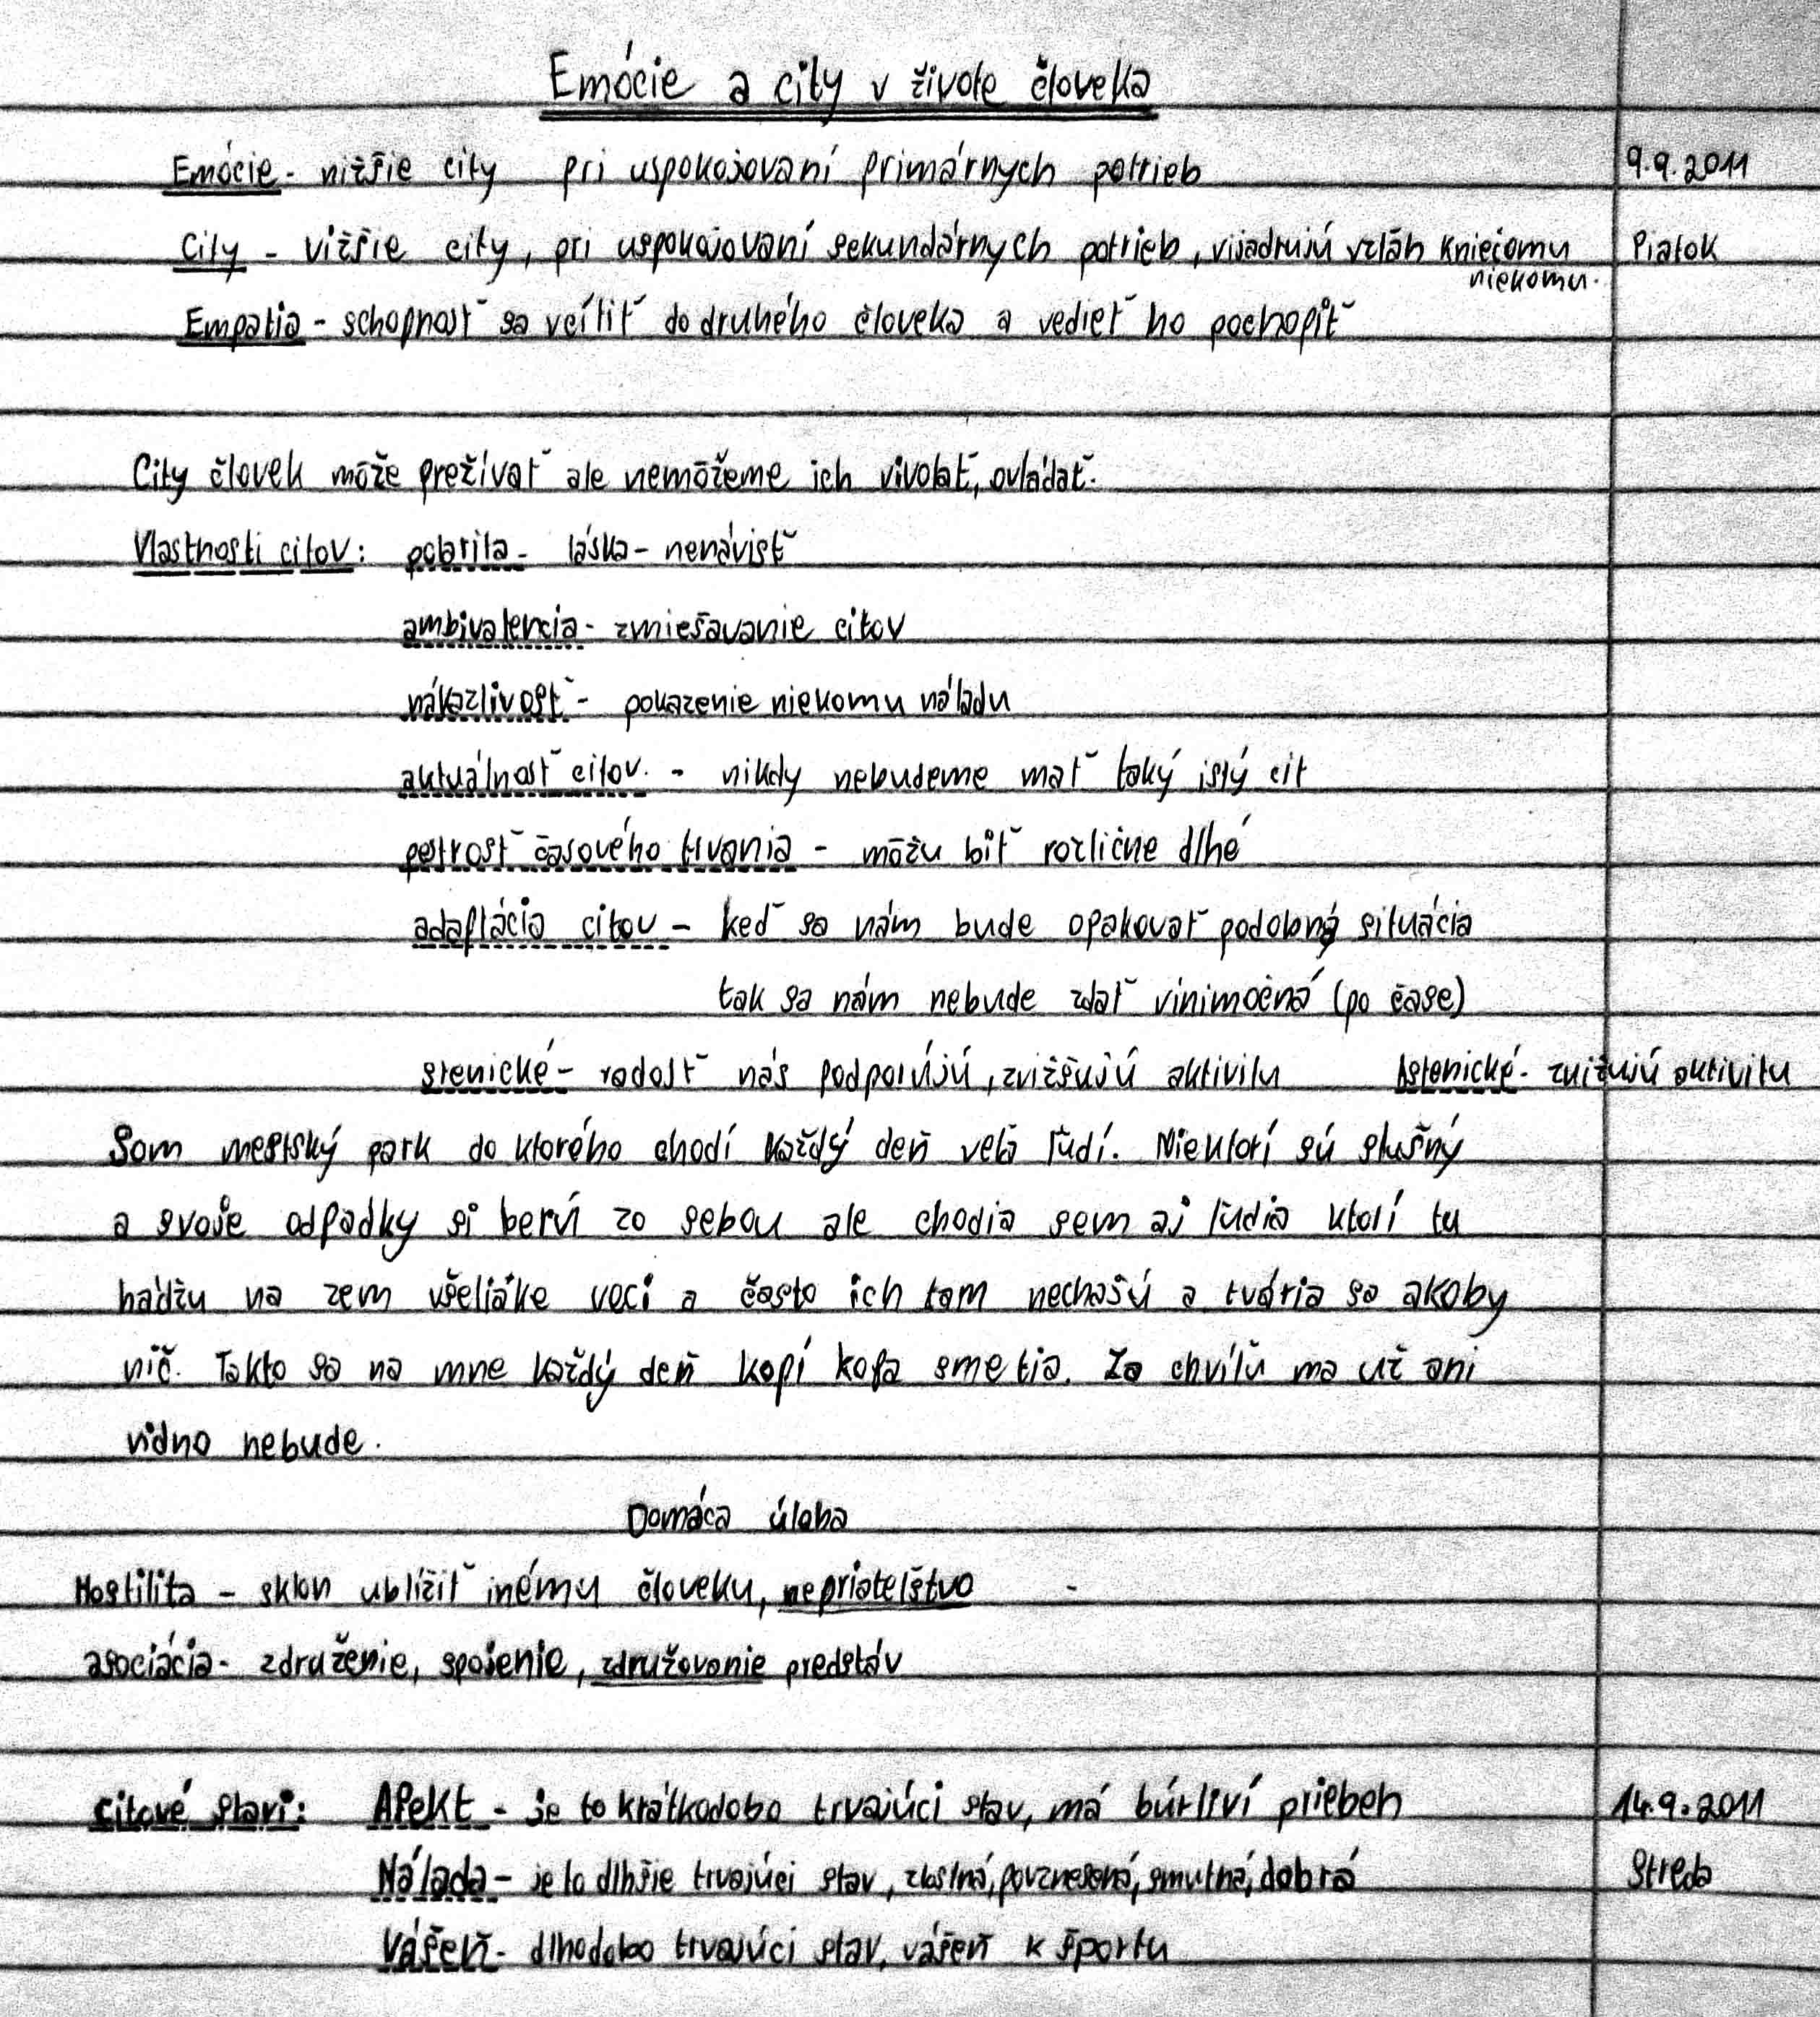 Emócie a city v živote človeka
Emócie - nižšie city pri uspokojovaní primárnych potrieb 9.9.2011
City - vižšie city, pri uspokojovaní sekundárnych potrieb, vijadrujú vzťah kniečomu Piatok
niekomu.
Empatia - schopnosť sa vcítiť do druhého človeka a vedieť ho pochopiť
City človek môže prežívať ale nemôžeme ich vivolať, ovládať.
Vlastnosti citov: polarita - láska - nenávisť
ambivalencia - zmiešavanie citov
nákazlivosť - pokazenie niekomu náladu
aktuálnosť citov. - nikdy nebudeme mať taký istý cit
pestrosť časového trvania - môžu biť rozlične dlhé
adaptácia citov - keď sa nám bude opakovať podobná situácia
tak sa nám nebude zdať vinimočná (po čase)
stenické - radosť nás podporujú, zvižšujú aktivitu Astenické - znižujú aktivitu
Som mestský park do ktorého chodí každý deň veľa ľudí. Niektorí sú slušný
a svoje odpadky si berú zo sebou ale chodia sem aj ľudia ktorí tu
hádžu na zem všeliake veci a často ich tam nechajú a tvária sa akoby
nič. Takto sa na mne každý deň kopí kopa smetia. Za chvíľu ma už ani
vidno nebude.
Domáca úloha
Hostilita - sklon ublížiť inému človeku, nepriateľstvo -
asociácia - združenie, spojenie, združovanie predstáv
Citové stavi: Afekt - je to krátkodobo trvajúci stav, má búrliví priebeh 14.9.2011
Nálada - je to dlhšie trvajúci stav, zlostná, povznesená, smutná, dobrá Streda
Vášeň - dlhodobo trvajúci stav, vášeň k športu